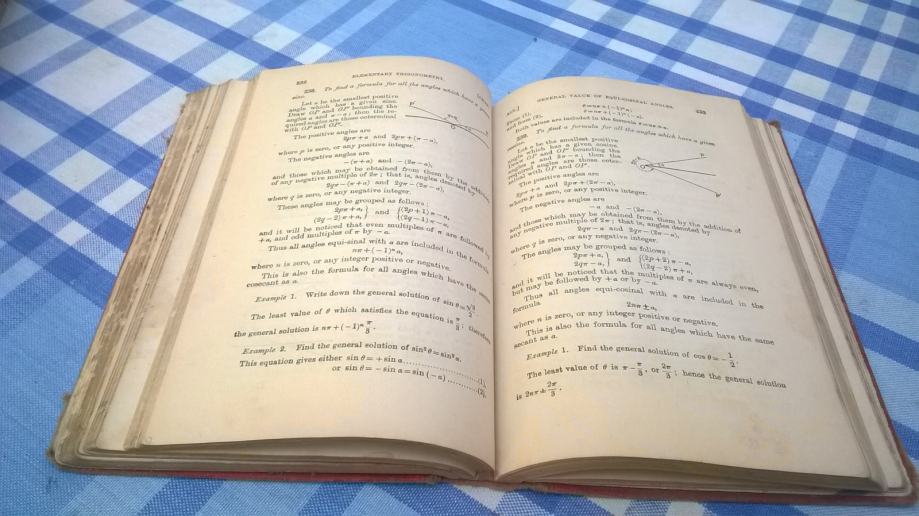 232 ELEMENTARY TRIGONOMETRY.
238. To find a formula for all the angles which have a given
sine.
Let α be the smallest positive
angle which has a given sine.
Draw OP and OP' bounding the
angles α and π−α; then the re-
quired angles are those coterminal
with OP and OP'.
The positive angles are
2pπ+α and 2pπ+(π−α),
where p is zero, or any positive integer.
The negative angles are
−(π+α) and −(2π−α),
and those which may be obtained from them by the addition
of any negative multiple of 2π; that is, angles denoted by
2qπ−(π+α) and 2qπ−(2π−α),
where q is zero, or any negative integer.
These angles may be grouped as follows:
2pπ+α,} and {(2p+1)π−α,
(2q−2)π+α,} {(2q−1)π−α,
and it will be noticed that even multiples of π are followed by
+α, and odd multiples of π by −α.
Thus all angles equi-sinal with α are included in the formula
nπ+(−1)ⁿα,
where n is zero, or any integer positive or negative.
This is also the formula for all angles which have the same
cosecant as α.
Example 1. Write down the general solution of sin θ=√3/2.
The least value of θ which satisfies the equation is π/3; therefore
the general solution is nπ+(−1)ⁿ π/3.
Example 2. Find the general solution of sin²θ=sin²α.
This equation gives either sin θ=+sin α (1),
or sin θ=−sin α=sin(−α) (2).
XIX.] GENERAL VALUE OF EQUI-COSINAL ANGLES. 233
From (1), θ=nπ+(−1)ⁿα;
and from (2), θ=nπ+(−1)ⁿ(−α).
Both values are included in the formula θ=nπ±α.
239. To find a formula for all the angles which have a given
cosine.
Let α be the smallest positive
angle which has a given cosine.
Draw OP and OP' bounding the
angles α and 2π−α; then the
required angles are those coter-
minal with OP and OP'.
The positive angles are
2pπ+α and 2pπ+(2π−α),
where p is zero, or any positive integer.
The negative angles are
−α and −(2π−α),
and those which may be obtained from them by the addition of
any negative multiple of 2π; that is, angles denoted by
2qπ−α and 2qπ−(2π−α),
where q is zero, or any negative integer.
The angles may be grouped as follows:
2pπ+α,} and {(2p+2)π−α,
2qπ−α,} {(2q−2)π+α,
and it will be noticed that the multiples of π are always even,
but may be followed by +α or by −α.
Thus all angles equi-cosinal with α are included in the
formula
2nπ±α,
where n is zero, or any integer positive or negative.
This is also the formula for all angles which have the same
secant as α.
Example 1. Find the general solution of cos θ=−1/2.
The least value of θ is π−π/3, or 2π/3; hence the general solution
is 2nπ±2π/3.